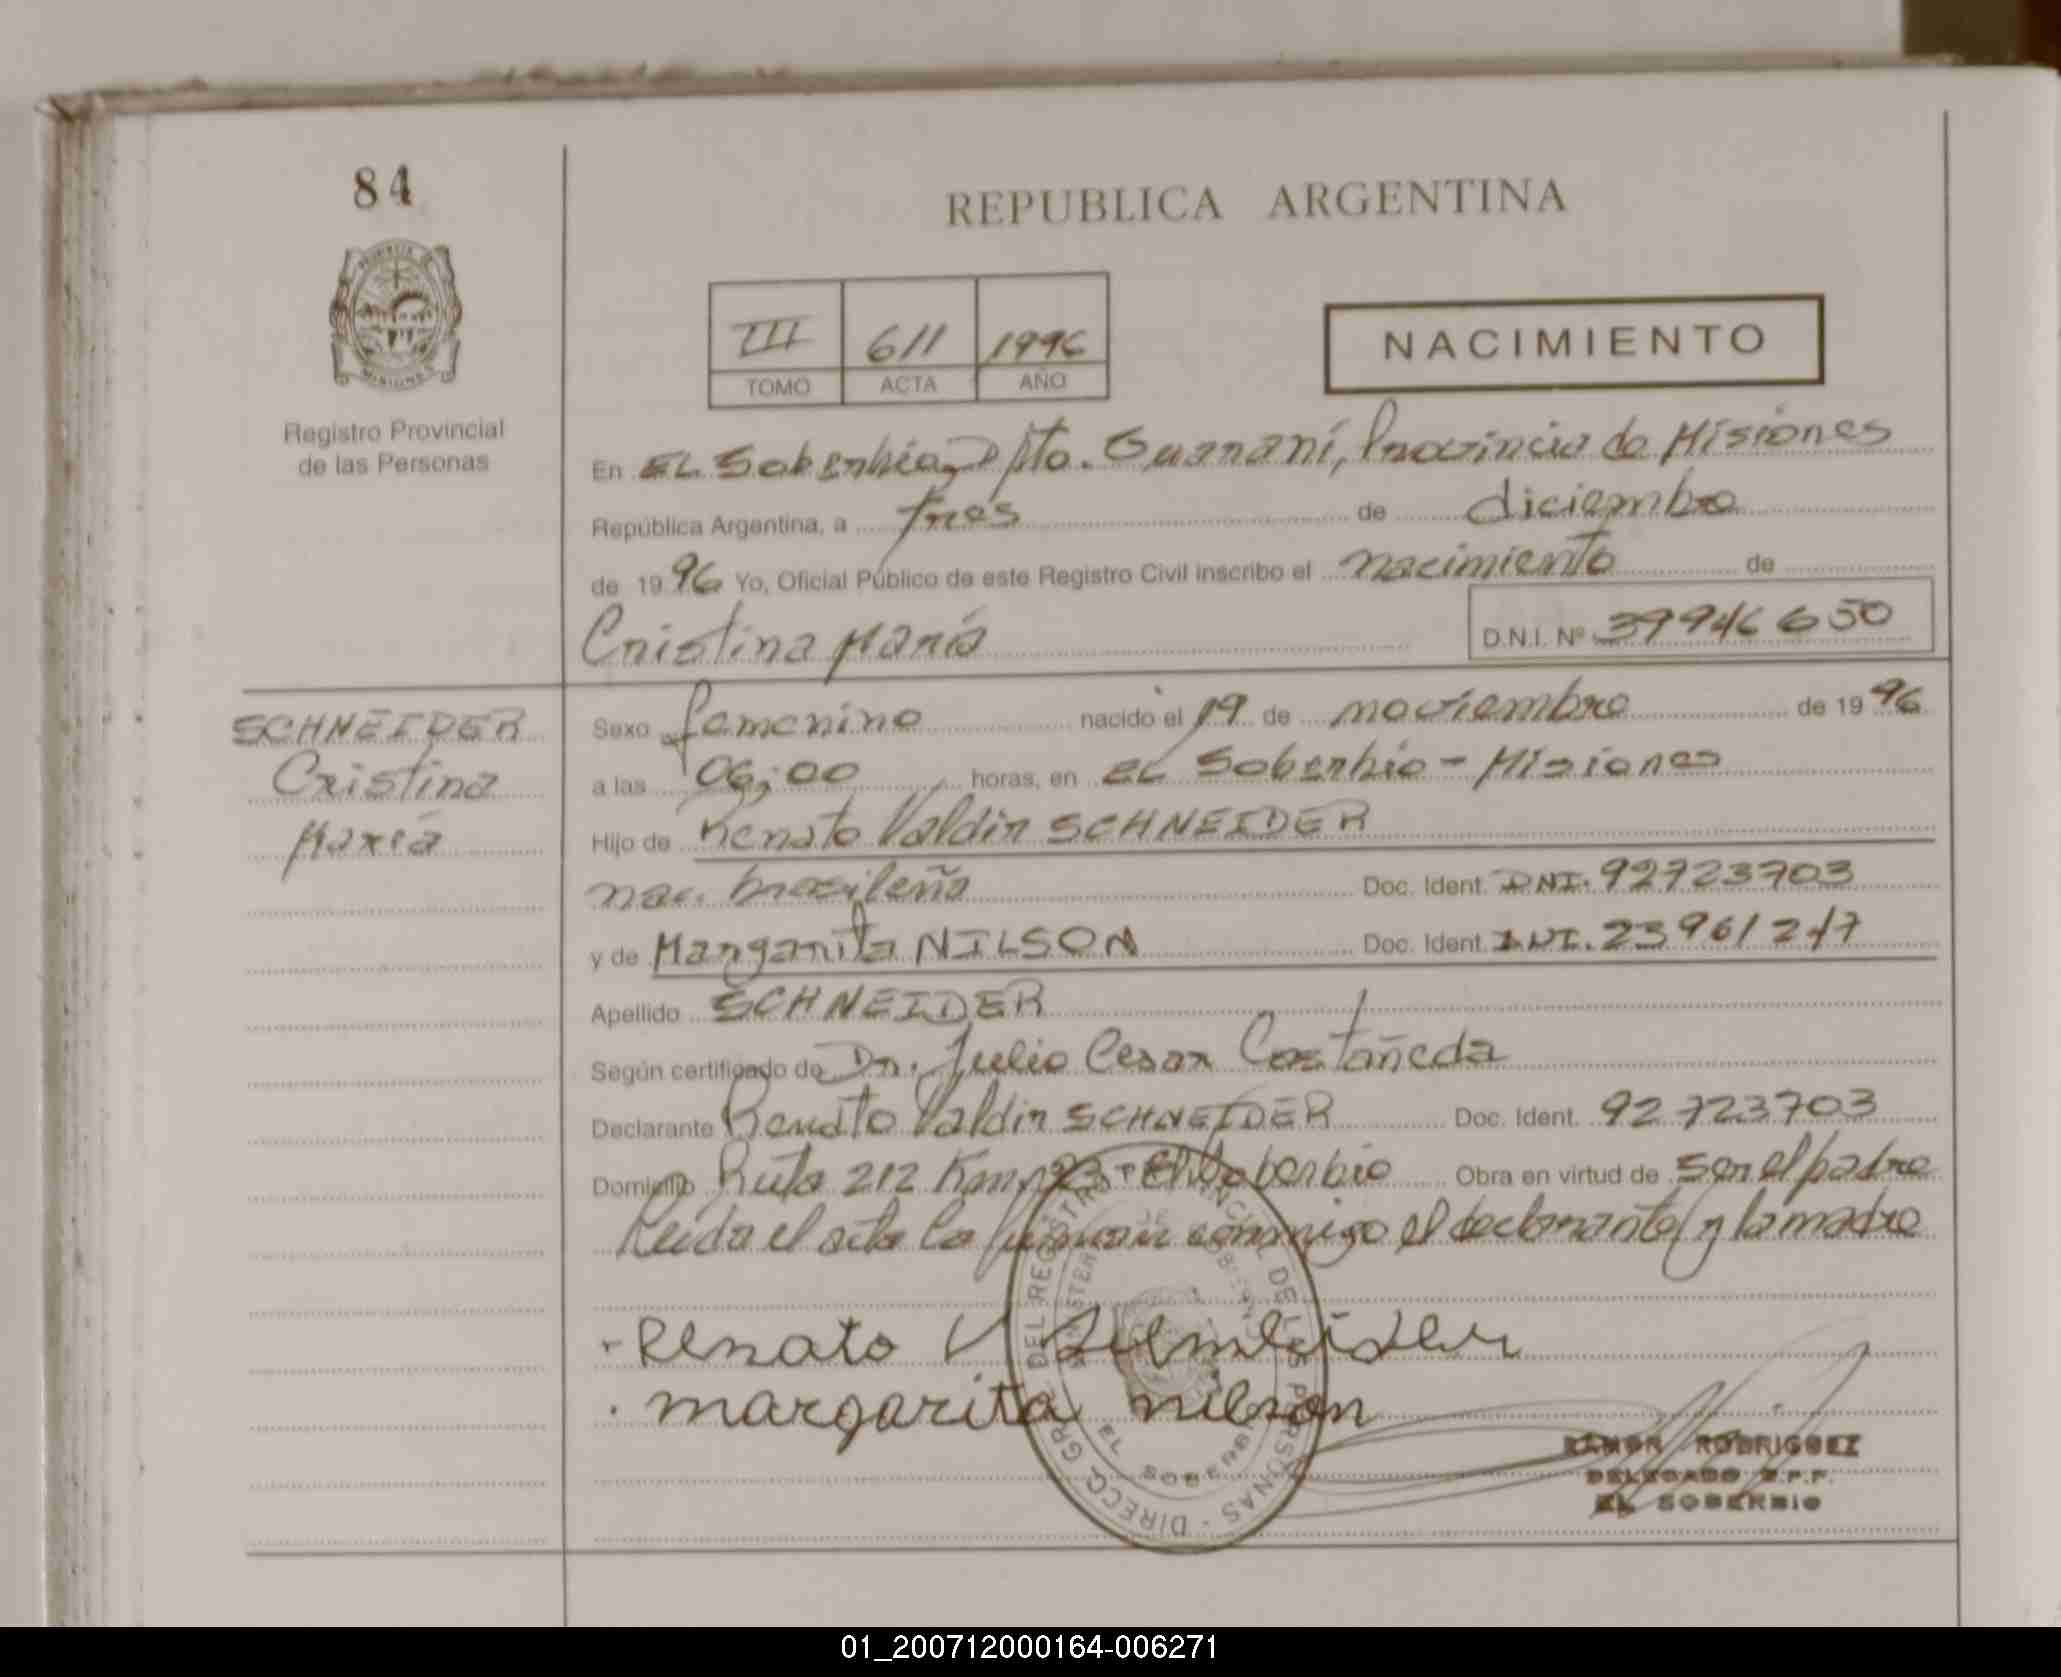 84
REPUBLICA ARGENTINA
PROVINCIA DE
MISIONES
Registro Provincial
de las Personas
III 611 1996
TOMO ACTA AÑO
NACIMIENTO
En EL Soberbio, Dpto. Guaraní, Provincia de Misiones
República Argentina, a tres de diciembre
de 1996 Yo, Oficial Público de este Registro Civil inscribo el nacimiento de
Cristina María
D.N.I. Nº 39946650
SCHNEIDER
Cristina
María
Sexo femenino nacido el 19 de noviembre de 1996
a las 06:00 horas, en EL Soberbio - Misiones
Hijo de Renato Valdir SCHNEIDER
nac. brasileña Doc. Ident. DNI. 92723703
y de Margarita NILSON Doc. Ident. DNI. 23961217
Apellido SCHNEIDER
Según certificado de Dr. Julio Cesar Castañeda
Declarante Renato Valdir SCHNEIDER Doc. Ident. 92723703
Domicilio Ruta 212 Km. 23 - El Soberbio Obra en virtud de ser el padre
Leida el acta la firman conmigo el declarante y la madre
Renato V Schneider
margarita nilson
DIRECC. GRAL. DEL REGISTRO PROVINCIAL DE LAS PERSONAS
EL SOBERBIO
RAMON RODRIGUEZ
DELEGADO R.P.P.
EL SOBERBIO
01_200712000164-006271